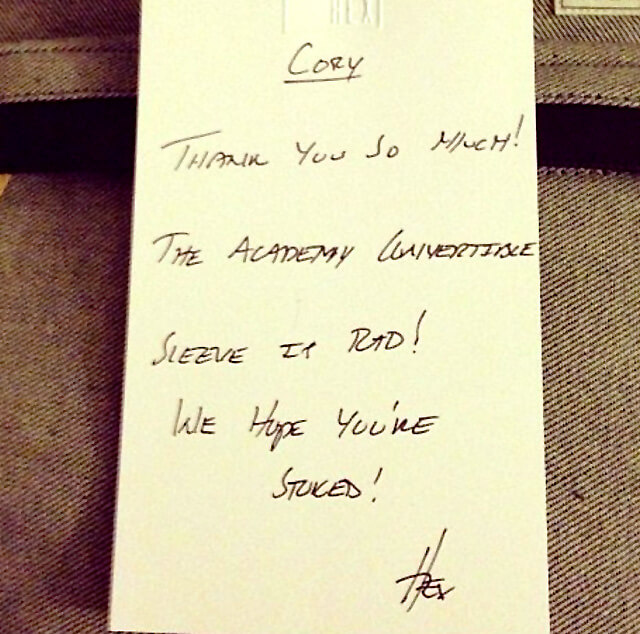 HEX
CORY
THANK YOU SO MUCH!
THE ACADEMY CONVERTIBLE
SLEEVE IS RAD!
WE HOPE YOU'RE
STOKED!
HEX